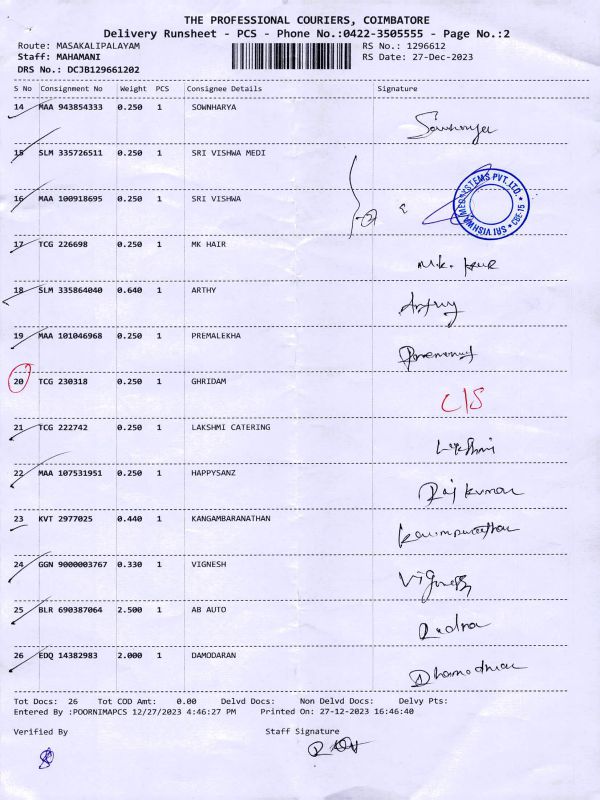 THE PROFESSIONAL COURIERS, COIMBATORE
Delivery Runsheet - PCS - Phone No.:0422-3505555 - Page No.:2
Route: MASAKALIPALAYAM RS No.: 1296612
Staff: MAHAMANI RS Date: 27-Dec-2023
DRS No.: DCJB129661202
S No Consignment No Weight PCS Consignee Details Signature
14 MAA 943854333 0.250 1 SOWNHARYA Sownharya
15 SLM 335726511 0.250 1 SRI VISHWA MEDI
16 MAA 100918695 0.250 1 SRI VISHWA
SRI VISHWA MEDISYSTEMS PVT.LTD. * CBE-15 *
17 TCG 226698 0.250 1 MK HAIR M.K. Hair
18 SLM 335864040 0.640 1 ARTHY Arthy
19 MAA 101046968 0.250 1 PREMALEKHA
20 TCG 230318 0.250 1 GHRIDAM C/S
21 TCG 222742 0.250 1 LAKSHMI CATERING Lakshmi
22 MAA 107531951 0.250 1 HAPPYSANZ Raj kumar
23 KVT 2977025 0.440 1 KANGAMBARANATHAN
24 GGN 9000003767 0.330 1 VIGNESH Vignesh
25 BLR 690387064 2.500 1 AB AUTO
26 EDQ 14382983 2.000 1 DAMODARAN
Tot Docs: 26 Tot COD Amt: 0.00 Delvd Docs: Non Delvd Docs: Delvy Pts:
Entered By :POORNIMAPCS 12/27/2023 4:46:27 PM Printed On: 27-12-2023 16:46:40
Verified By Staff Signature